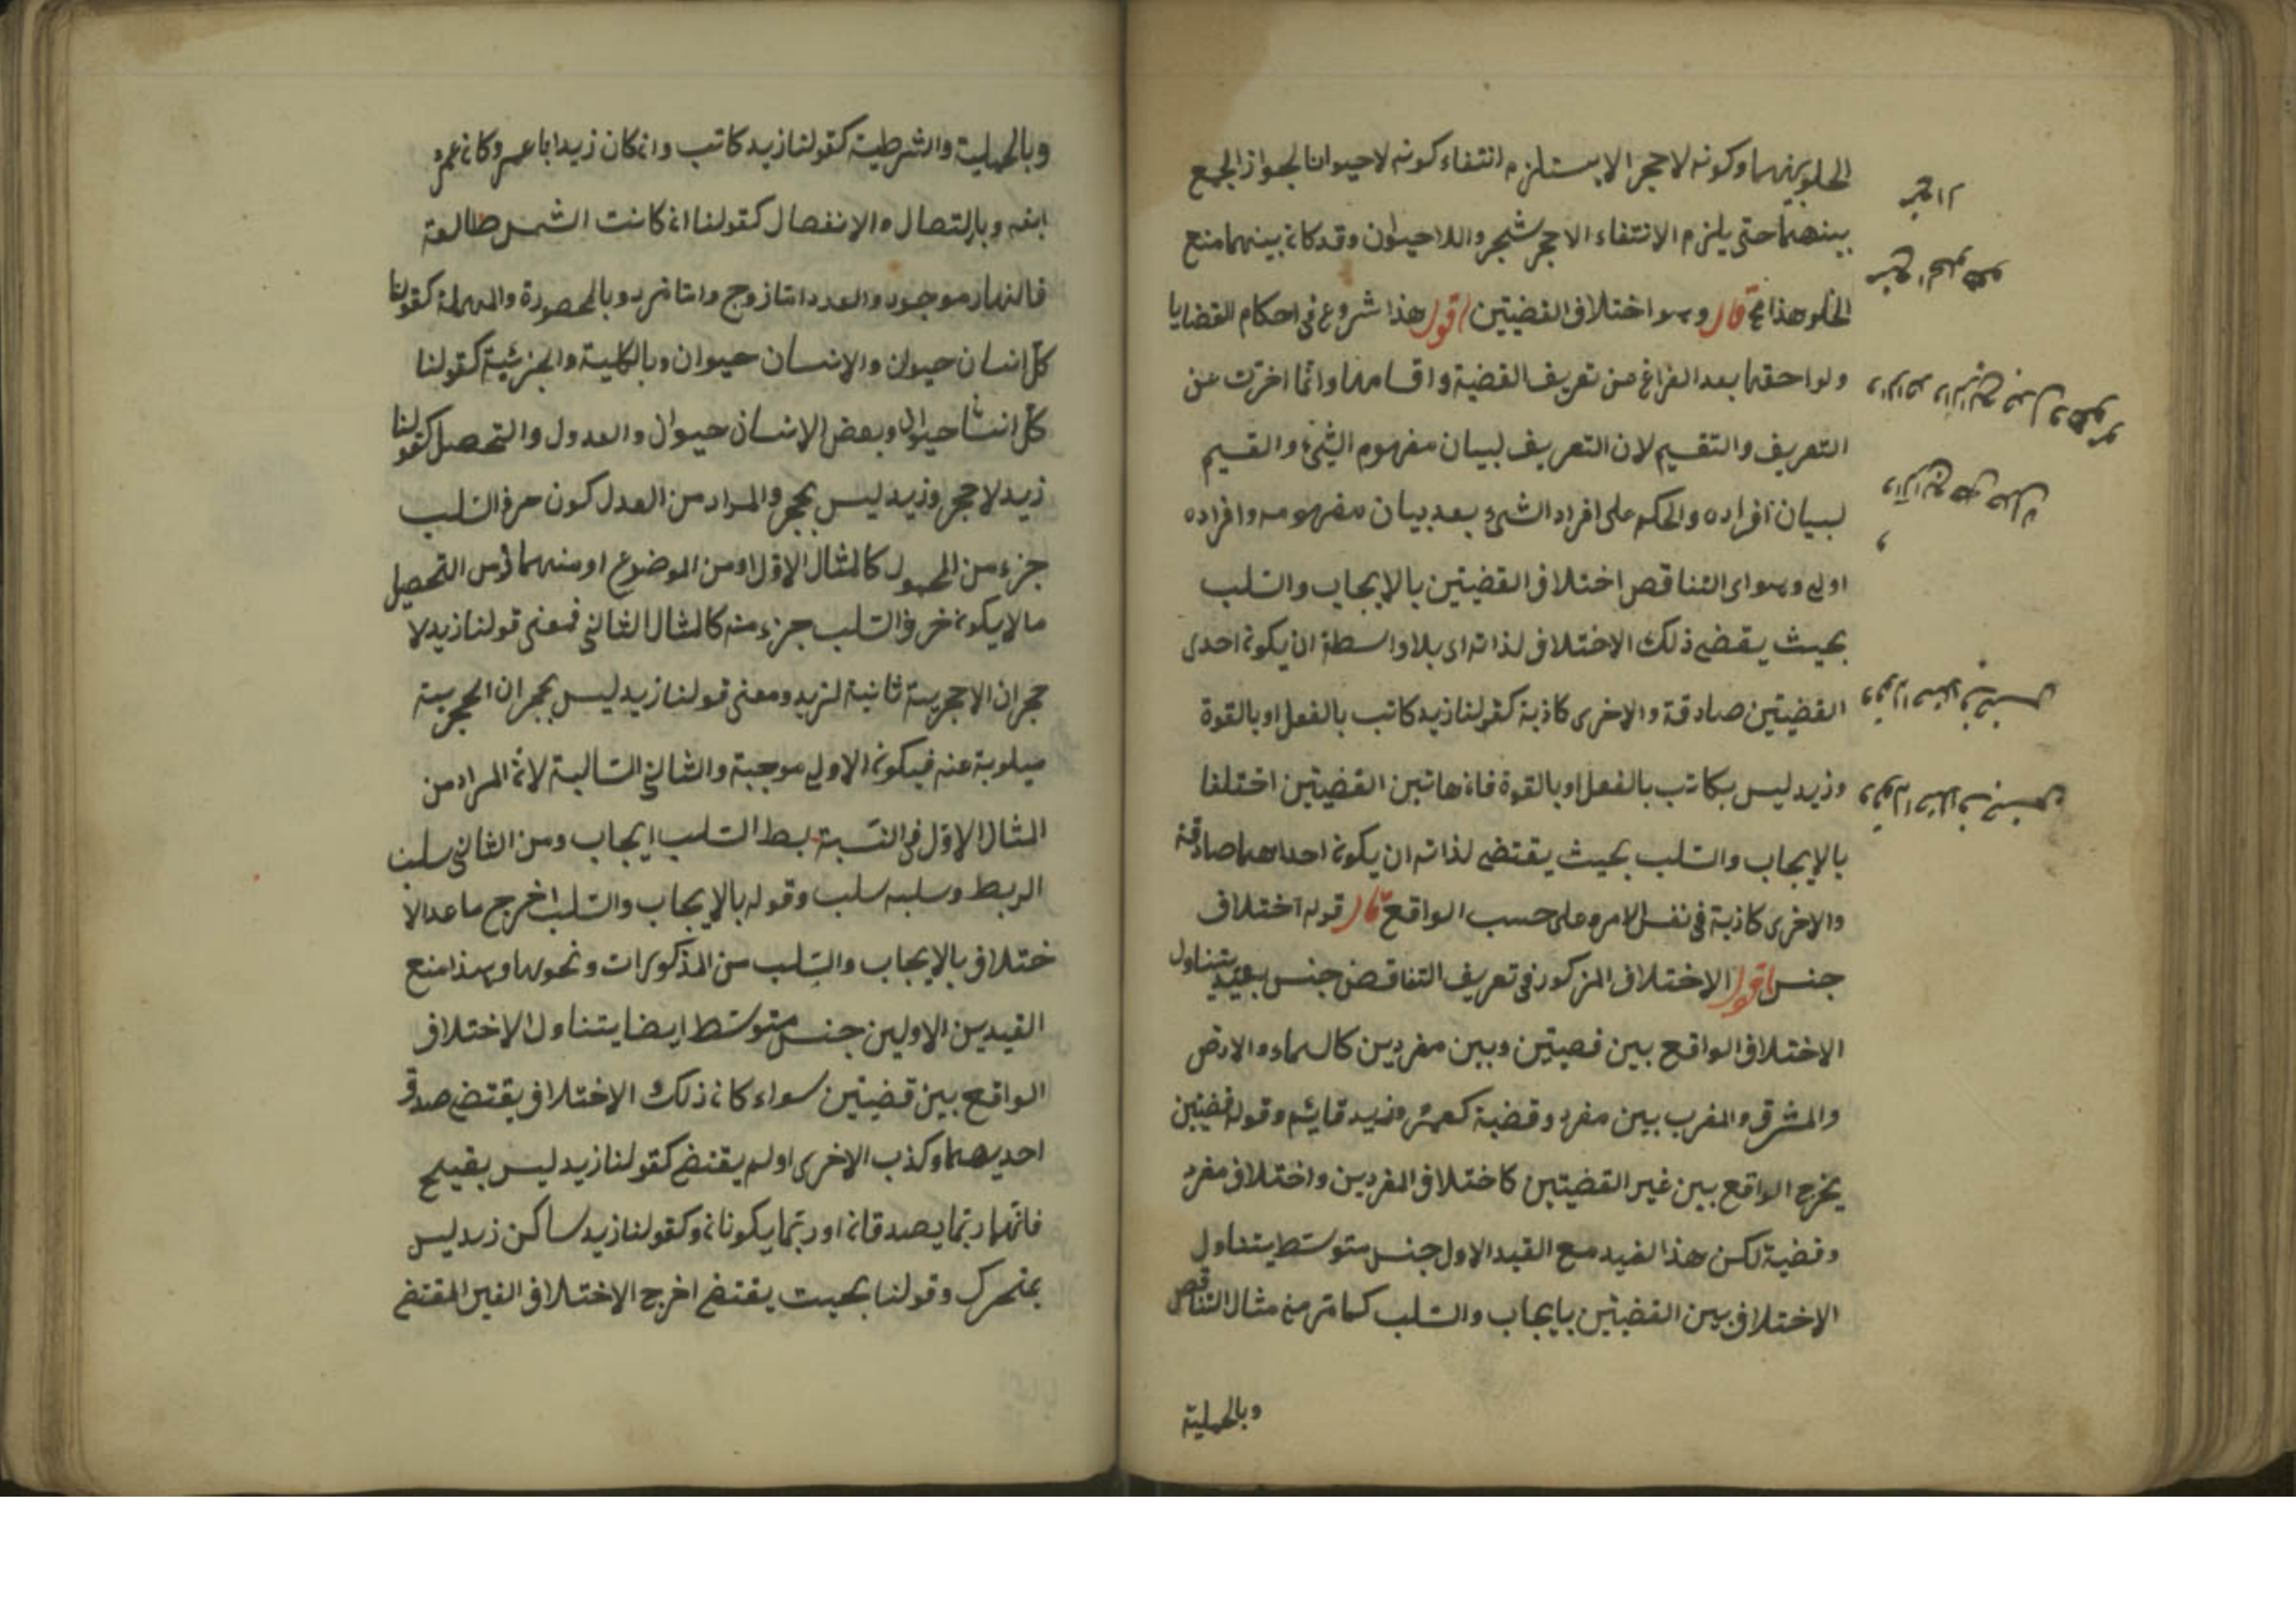 الخلو بينهما وكونه لا حجرا لا يستلزم انتفاء كونه لا حيوانا لجواز الجمع
بينهما حتى يلزم الانتفاء الاحجر شجر واللا حيوان وقد كان بينهما منع
الخلو هذا قال وهو اختلاف القضيتين اقول هذا شروع في احكام القضايا
ولواحقها بعد الفراغ من تعريف القضية واقسامها وانما اخرت عن
التعريف والتقسيم لان التعريف لبيان مفهوم الشئ والقسيم
لبيان افراده والحكم على افراد الشئ بعد بيان مفهومه وافراده
اولى وهو اى التناقص اختلاف القضيتين بالإيجاب والسلب
بحيث يقضى ذلك الاختلاف لذاته اى بلا واسطة ان يكون احدى
القضيتين صادقة والاخرى كاذبة كقولنا زيد كاتب بالفعل او بالقوة
وزيد ليس بكاتب بالفعل او بالقوة فان هاتين القضيتين اختلفا
بالإيجاب والسلب بحيث يقتضى لذاته ان يكون احداهما صادقة
والاخرى كاذبة في نفس الامر وعلى حسب الواقع قال قوله اختلاف
جنس اقول الاختلاف المزكور في تعريف التناقض جنس بعيد يتناول
الاختلاف الواقع بين قضيتين وبين مفردين كالسماء والارض
والمشرق والمغرب بين مفرد وقضية كعمرو وزيد قايئم وقوله قضيتين
يخرج الواقع بين غير القضيتين كاختلاف المفردين واختلاف مفرد
وقضية لكن هذا لقيد مع القيد الاول جنس متوسط يتناول
الاختلاف بين القضيتين بايجاب والسلب كما مر من مثال التناقص
وبالحملية
وبالحملية والشرطية كقولنا زيد كاتب وان كان زيدا با عمرو كان عمرو
ابنه وبالتصال والانفصال كقولنا ان كانت الشمس طالعة
فالنهار موجود والعدد اما زوج واما فرد وبالمحصورة والمهملة كقولنا
كل انسان حيوان والإنسان حيوان وبالكلية والجزئية كقولنا
كل انسا حيوان وبعض الإنسان حيوان والعدول والتحصل كقولنا
زيد لا حجر وزيد ليس بحجر والمراد من العدل كون حرف السلب
جزء من المحمول كالمثال الاول او من الموضوع او منهما ومن التحصيل
ما لا يكون حرف السلب جزء منه كالمثال الثانى فمعنى قولنا زيد لا
حجر ان الاحجرية ثانية لزيد ومعنى قولنا زيد ليس بحجر ان الحجرية
ميلوبة عنه فيكون الاولى موجبة والثانى السالبة لان المراد من
المثال الاول في النسبة بط السلب ايجاب ومن الثانى سلب
الربط وسلبه سلب وقوله بالإيجاب والسلب اخرج ماعدالا
ختلاف بالإيجاب والسلب من المذكورات ونحوها وبهذا منع
القيدين الاولين جنس متوسط ايضا يتناول الاختلاف
الواقع بين قضيتين سواء كان ذلك الاختلاف يقتضى صدق
احديهما وكذب الاخرى اولم يقتضى كقولنا زيد ليس بقبيح
فانهما ربما يصدقان او ربما يكونان وكقولنا زيد ساكن زيد ليس
بمتحرك وقولنا بحيث يقتضى اخرج الاختلاف الغير المقتضى